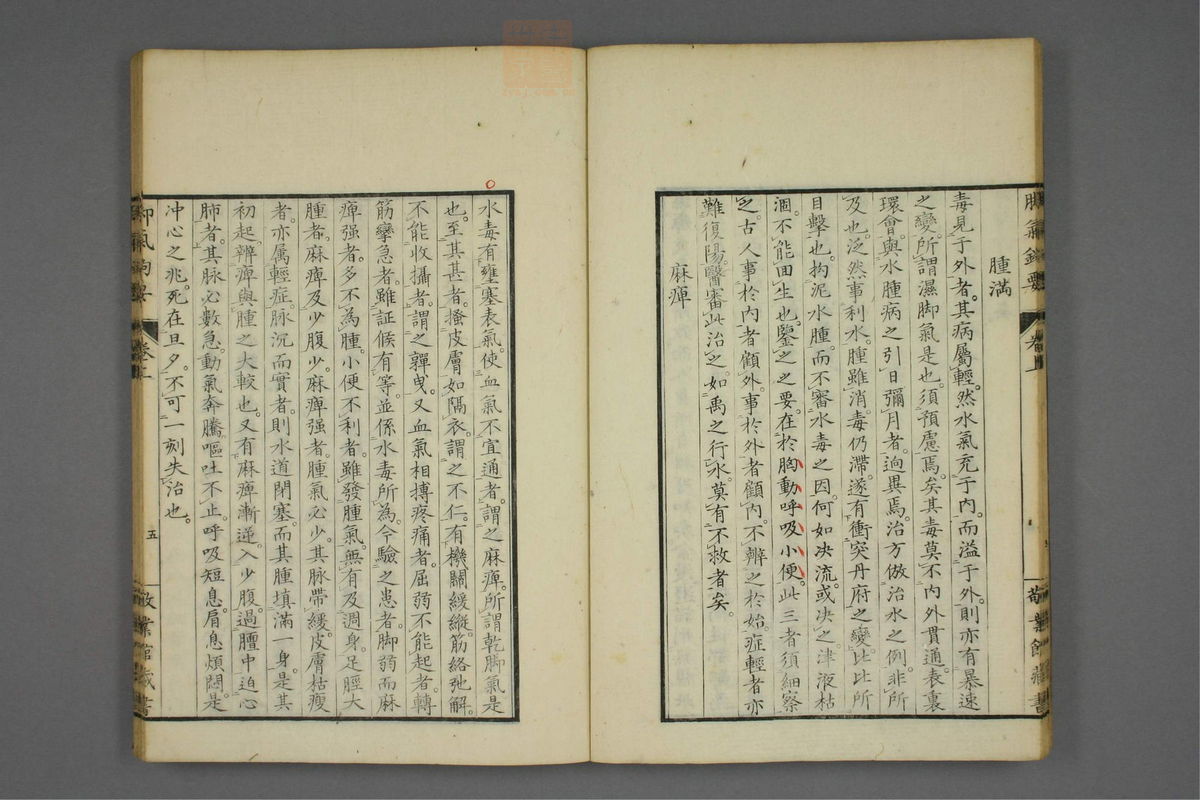 腫滿
毒見于外者其病屬輕然水氣充于內而溢于外則亦有暴速
之變所謂濕脚氣是也須預慮焉矣其毒莫不內外貫通表裏
環會與水腫病之引日彌月者逈異焉治方倣治水之例非所
及也泛然事利水腫雖消毒仍滯遂有衝突丹府之變比比所
目擊也拘泥水腫而不審水毒之因何如決流或決之津液枯
涸不能回生也鑒之之要在於胸動呼吸小便此三者須細察
之古人事於內者顧外事於外者顧內不辨之於始症輕者亦
難復陽醫審此治之如禹之行水莫有不救者矣
麻痺
水毒有壅塞表氣使血氣不宜通者謂之麻痺所謂乾脚氣是
也至其甚者搔皮膚如隔衣謂之不仁有機關緩縱筋絡弛解
不能收攝者謂之嚲曳又血氣相搏疼痛者屈弱不能起者轉
筋攣急者雖証候有等並係水毒所為今驗之患者脚弱而麻
痺强者多不為腫小便不利者雖發腫氣無有及週身足脛大
腫者麻痺及少腹少麻痺强者腫氣必少其脉帶緩皮膚枯瘦
者亦屬輕症脉沉而實者則水道閉塞而其腫填滿一身是其
初起辨痺與腫之大較也又有麻痺漸逆入少腹過膻中迫心
肺者其脉必數急動氣奔騰嘔吐不止呼吸短息肩息煩悶是
冲心之兆死在旦夕不可一刻失治也
脚氣鈎要
卷上
五
敬業館藏書